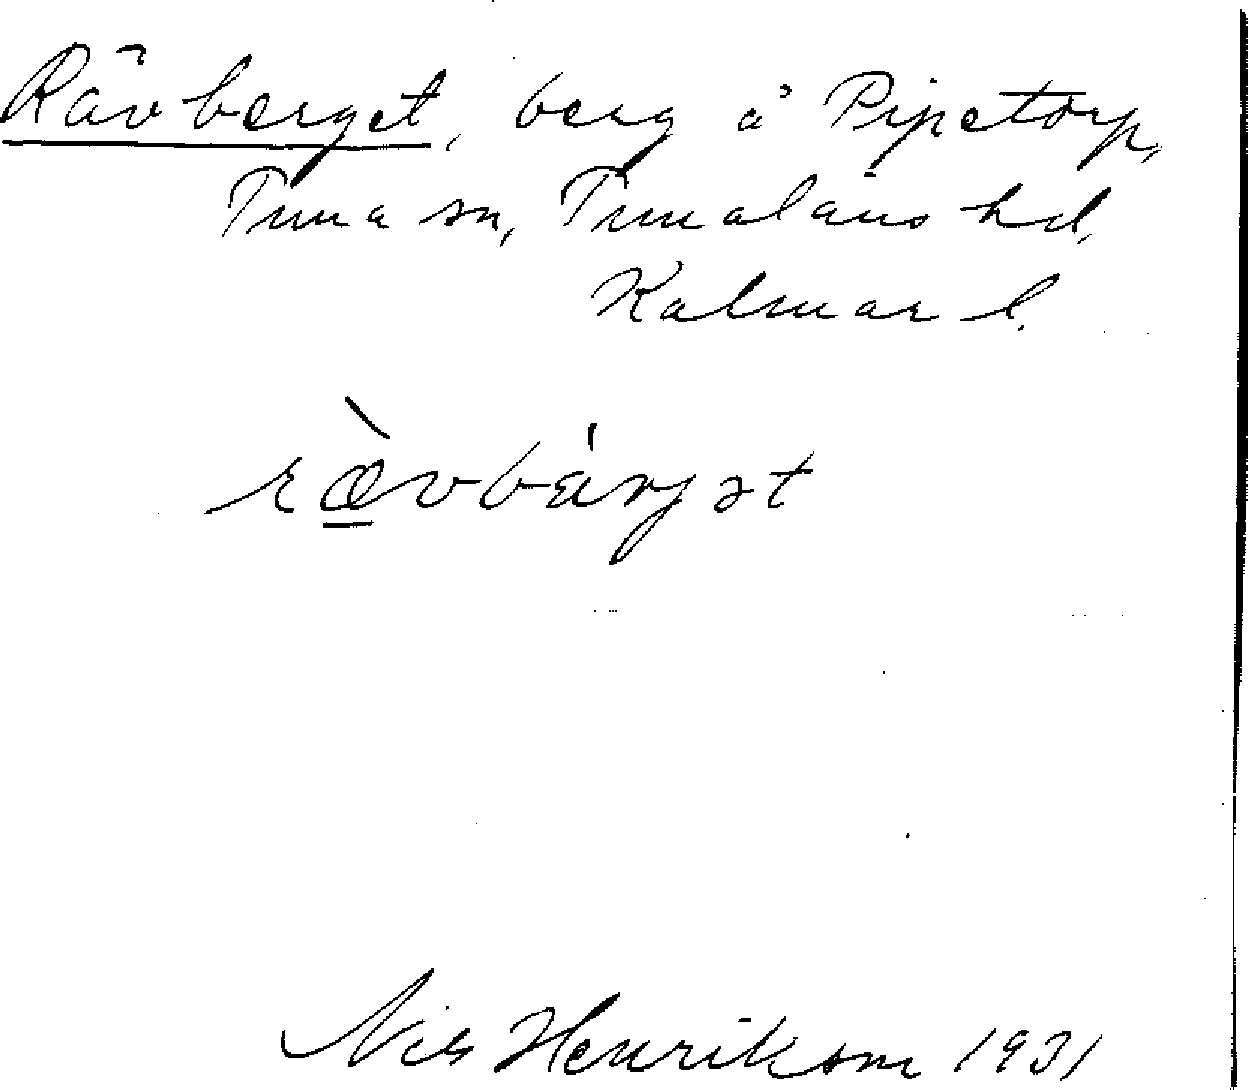 Rävberget, berg å Pipetorp,
Tuna sn, Tunaläns hd,
Kalmar l.
ræ̠̀vbárjət
Nils Henrikson 1931